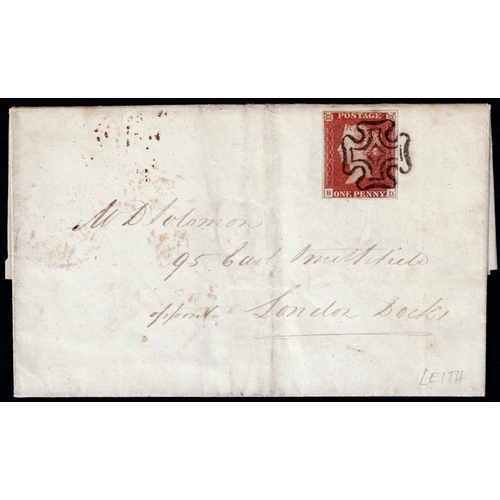 POSTAGE
B ONE PENNY D
Mr D Solomon
95 East Smithfield
opposite London Docks
LEITH